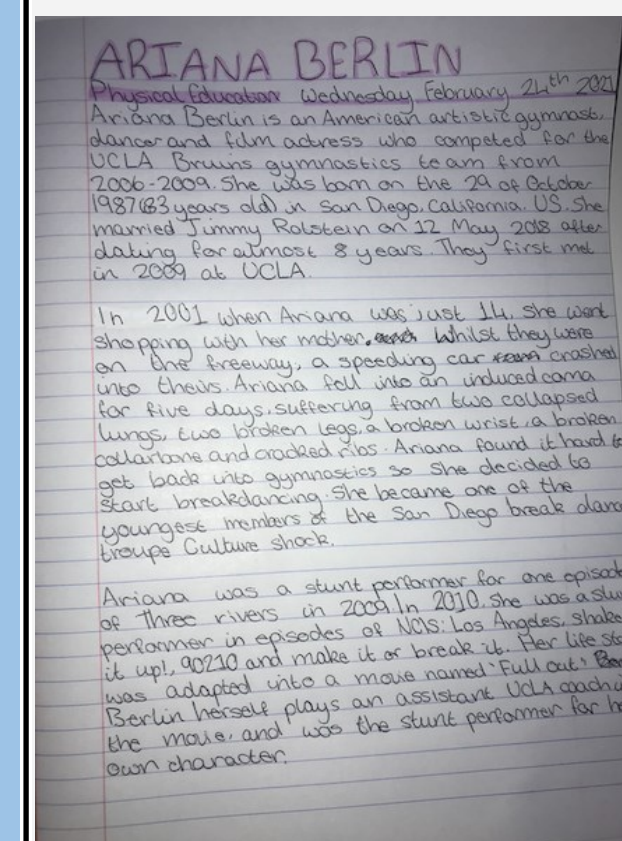 ARIANA BERLIN
Physical Education Wednesday February 24th 2021
Ariana Berlin is an American artistic gymnast,
dancer and film actress who competed for the
UCLA Bruins gymnastics team from
2006-2009. She was born on the 29 of October
1987 (33 years old) in San Diego, California, US. She
married Jimmy Rotstein on 12 May 2018 after
dating for almost 8 years. They first met
in 2009 at UCLA.
In 2001 when Ariana was just 14, she went
shopping with her mother. Whilst they were
on the freeway, a speeding car crashed
into theirs. Ariana fell into an induced coma
for five days, suffering from two collapsed
lungs, two broken legs, a broken wrist, a broken
collarbone and cracked ribs. Ariana found it hard to
get back into gymnastics so she decided to
start breakdancing. She became one of the
youngest members of the San Diego break danc
troupe Culture shock.
Ariana was a stunt performer for one episod
of Three rivers in 2009. In 2010, she was a stu
performer in episodes of NCIS: Los Angeles, shake
it up!, 90210 and make it or break it. Her life sto
was adapted into a movie named 'Full out'.
Berlin herself plays an assistant UCLA coach i
the movie, and was the stunt performer for he
own character.